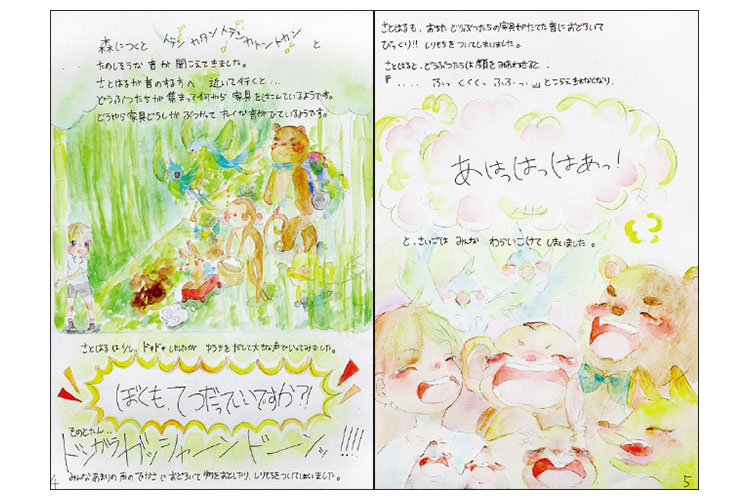 森につくと トテン カタン トテン カトントカン と
たのしそうな 音が 聞こえてきました。
さとはるが 音のする方へ 近いて行くと…
どうぶつたちが 集まって何やら 家具を はこんでいるようです。
どうやら家具どうしが ぶつかって キレイな音がでているようです。
さとはるは少し、ドキドキしたけれど ゆうきをだして大きな声でいってみました。
ぼくも、てつだっていいですか?!
そのとたん..
ドンガラガッシャーンドーンッ!!!!
みんなあまりの声のでかさにおどろいて 物をおとしたり、しりもちをついてしまいました。
4
さとはるも、おちた どうぶつたちの家具がたてた音に おどろいて
びっくり!! しりもちをついてしまいました。
さとはると、どうぶつたちは 顔をみあわせると、
『.... ふっ くくくっ ふふっ..』とこらえきれなくなり、
あはっはっはあっ!
と、さいごは みんな わらいこけて しまいました。
5